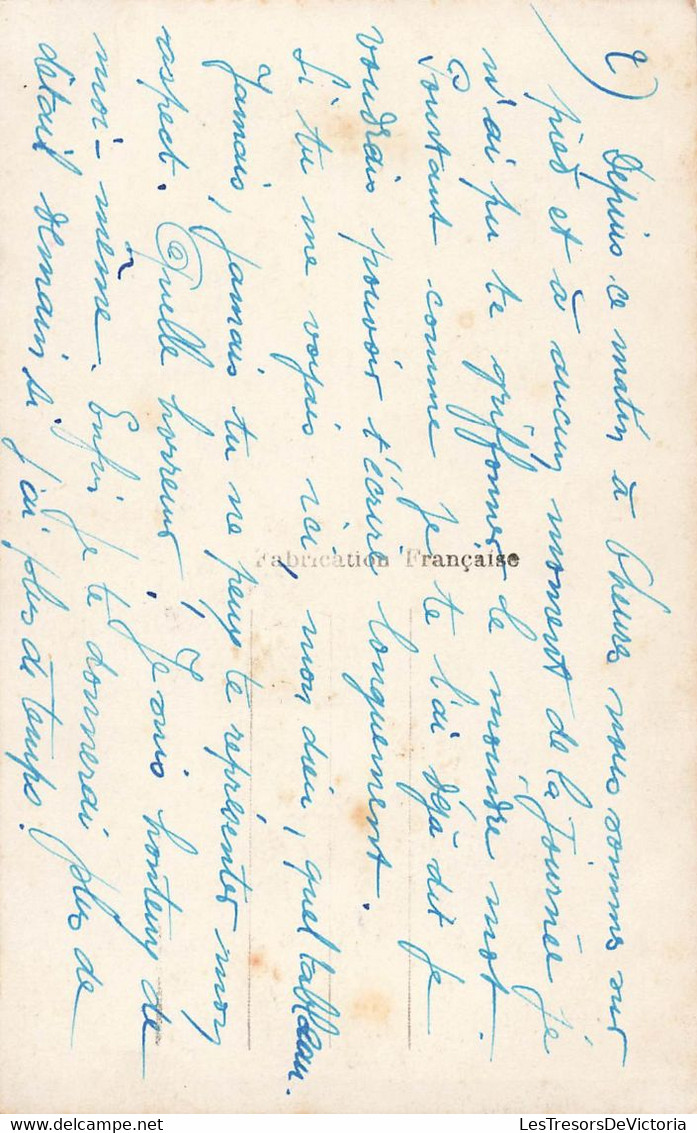 2)
Depuis ce matin à 6 heures nous sommes sur
pied et à aucun moment de la journée je
n'ai pu te griffonner le moindre mot.
Pourtant comme je te l'ai déjà dit je
voudrais pouvoir t'écrire longuement.
Si tu me voyais ici, mon dieu, quel tableau.
Jamais, jamais tu ne peux te représenter mon
aspect. Quelle horreur ! Je suis honteux de
moi-même. Enfin je te donnerai plus de
détail demain si j'ai plus de temps.
Fabrication Française
LesTresorsDeVictoria
delcampe.net